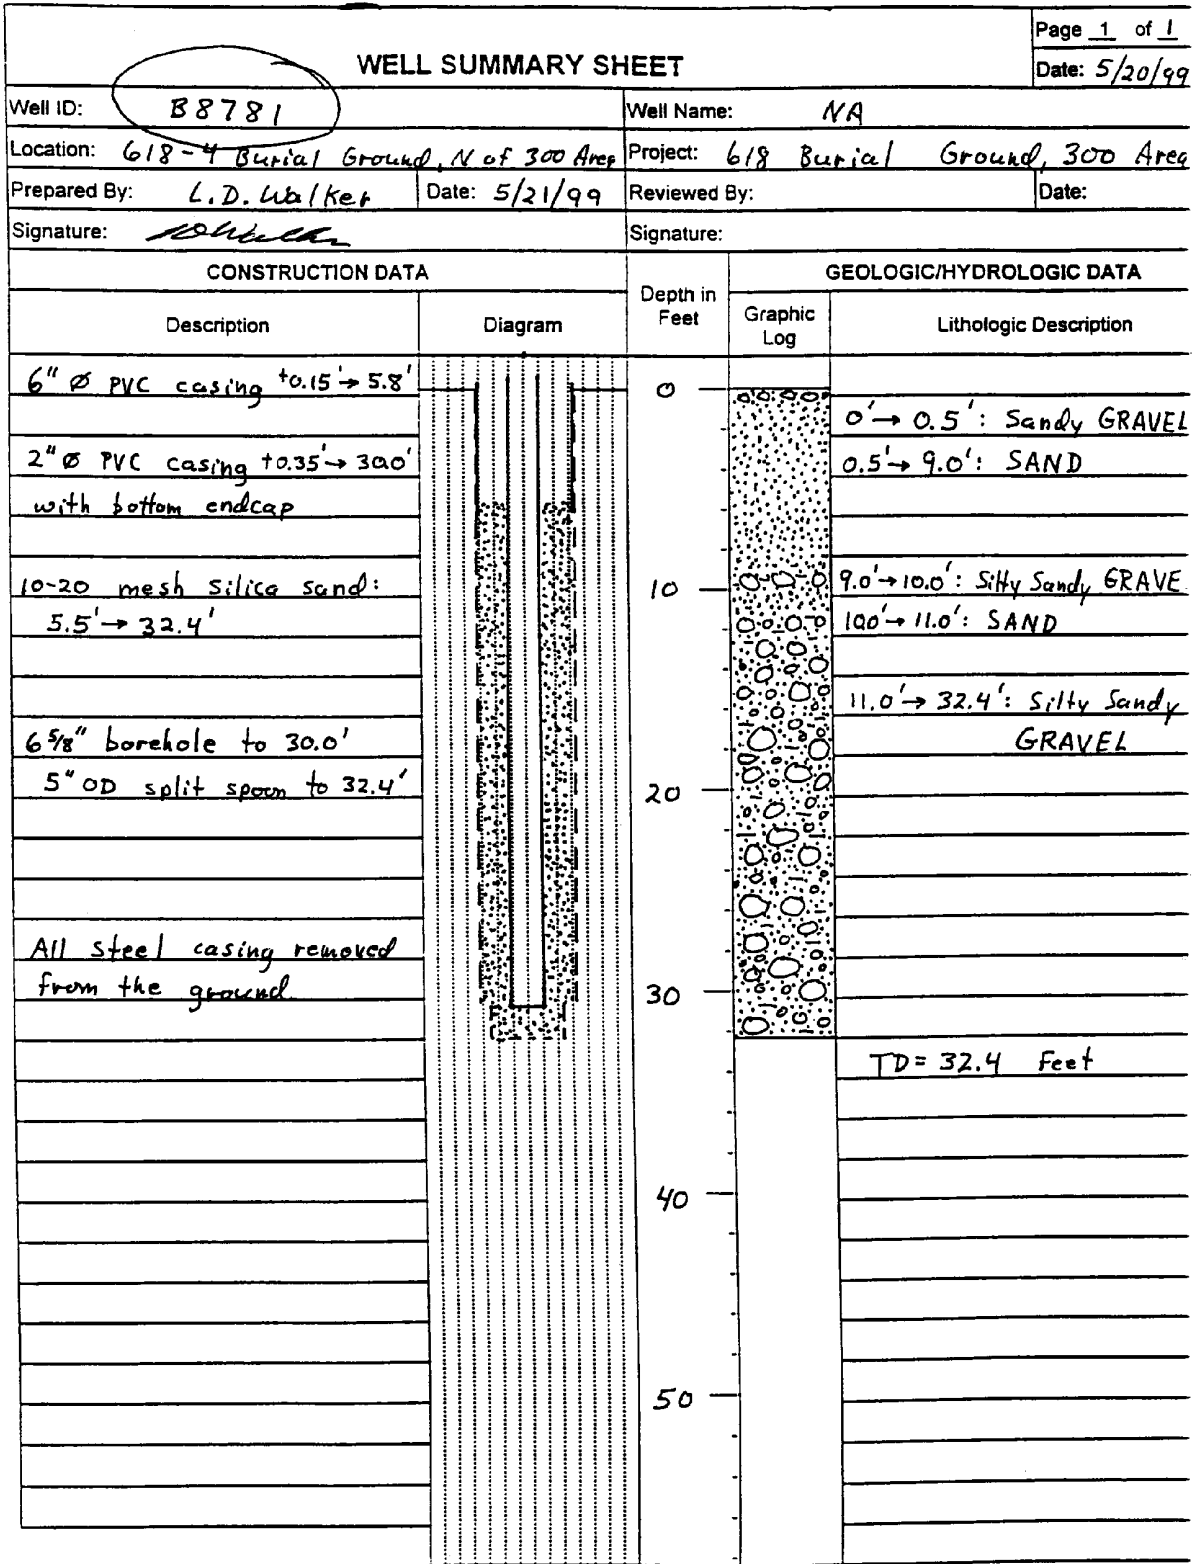 Page 1 of 1
WELL SUMMARY SHEET
Date: 5/20/99
Well ID: B8781
Well Name: NA
Location: 618-4 Burial Ground, N of 300 Area
Project: 618 Burial Ground, 300 Area
Prepared By: L.D. Walker
Date: 5/21/99
Reviewed By:
Date:
Signature:
Signature:
CONSTRUCTION DATA
Depth in
Feet
GEOLOGIC/HYDROLOGIC DATA
Description
Diagram
Graphic
Log
Lithologic Description
6" Ø PVC casing +0.15'→5.8'
2" Ø PVC casing +0.35'→30.0'
with bottom endcap
10-20 mesh silica sand:
5.5'→32.4'
6 5/8" borehole to 30.0'
5" OD split spoon to 32.4'
All steel casing removed
from the ground
0
10
20
30
40
50
0'→0.5': Sandy GRAVEL
0.5'→9.0': SAND
9.0'→10.0': Silty Sandy GRAVE
10.0'→11.0': SAND
11.0'→32.4': Silty Sandy
GRAVEL
TD= 32.4 Feet